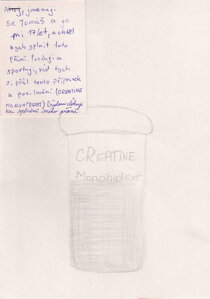 Ahoj, jmenuji
se Tomáš a je
mi 17 let, a chtěl
bych splnit toto
přání. Posiluji a
sportuji, rád bych
si přál tento přípravek
k posilování (CREATINE
MONOHYDRAT)
za splnění mého přání
CREATINE
Monohydrát